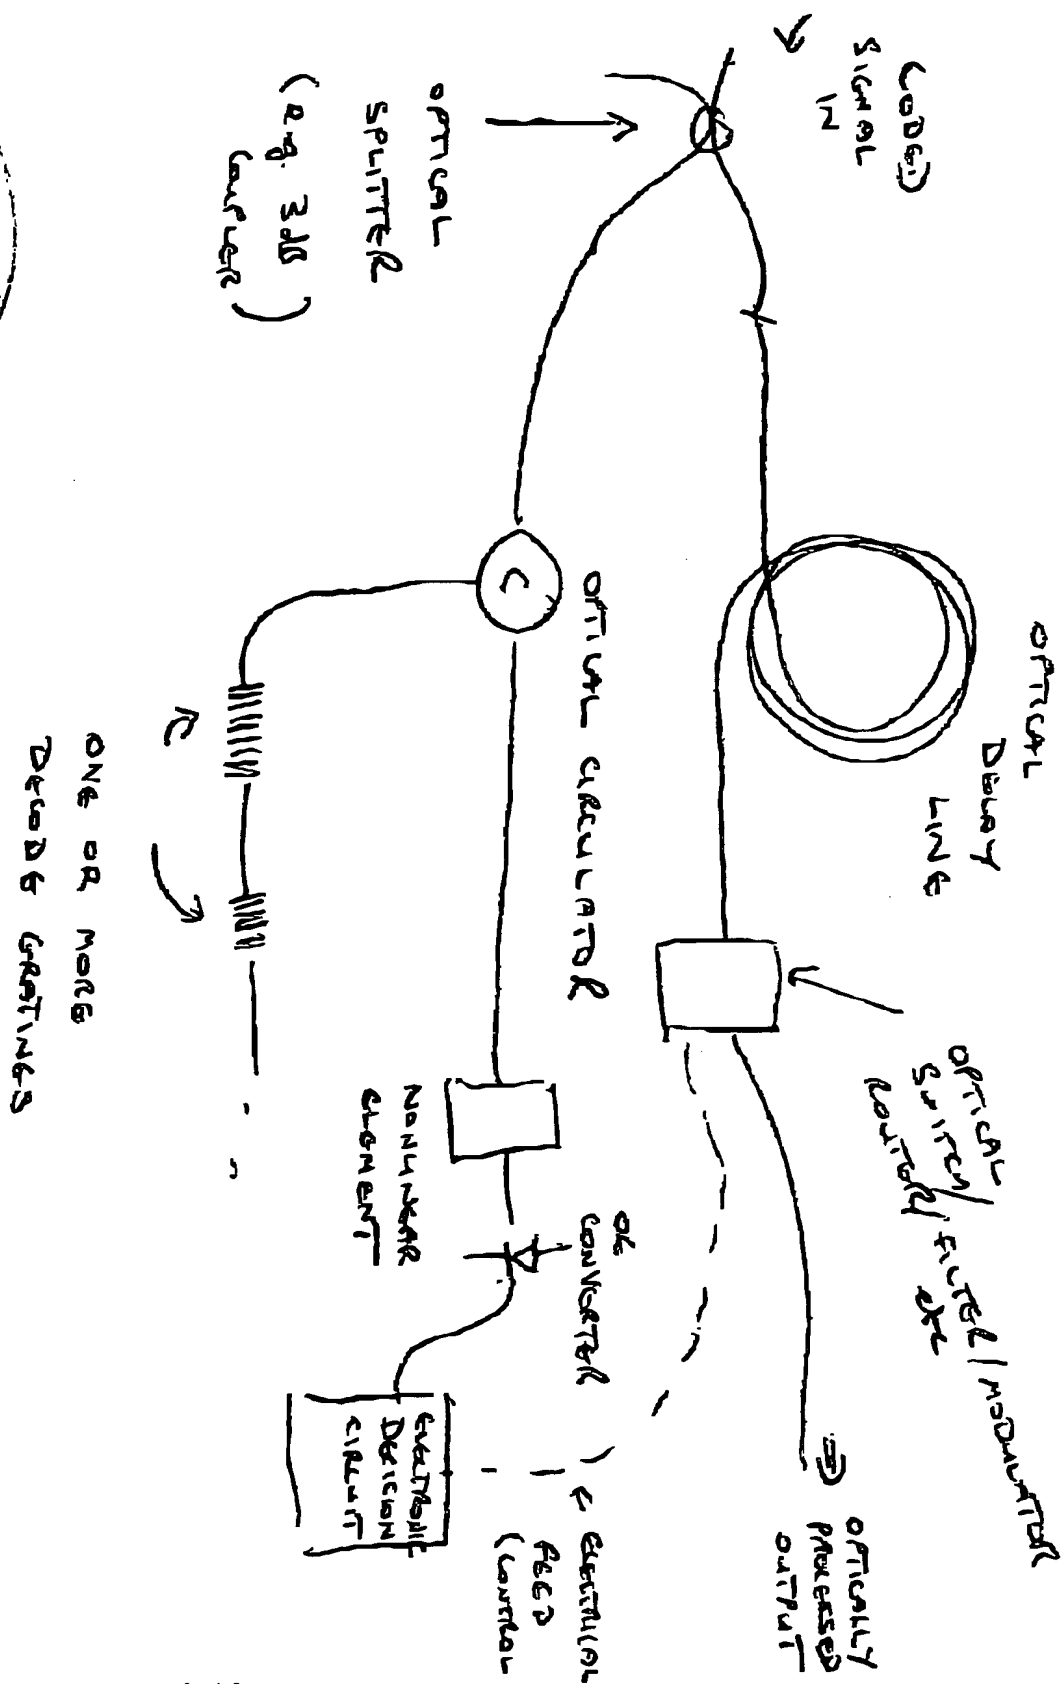 (CODED)
SIGNAL
IN
OPTICAL
SPLITTER
(e.g. 3dB
COUPLER)
OPTICAL
DELAY
LINE
OPTICAL CIRCULATOR
C
ONE OR MORE
DECODE GRATINGS
OPTICAL
SWITCH/
ROUTER/FILTER/MODULATOR
etc
NONLINEAR
ELEMENT
OE
CONVERTER
ELECTRONIC
DECISION
CIRCUIT
ELECTRICAL
FEED
(CONTROL
OPTICALLY
PROCESSED
OUTPUT